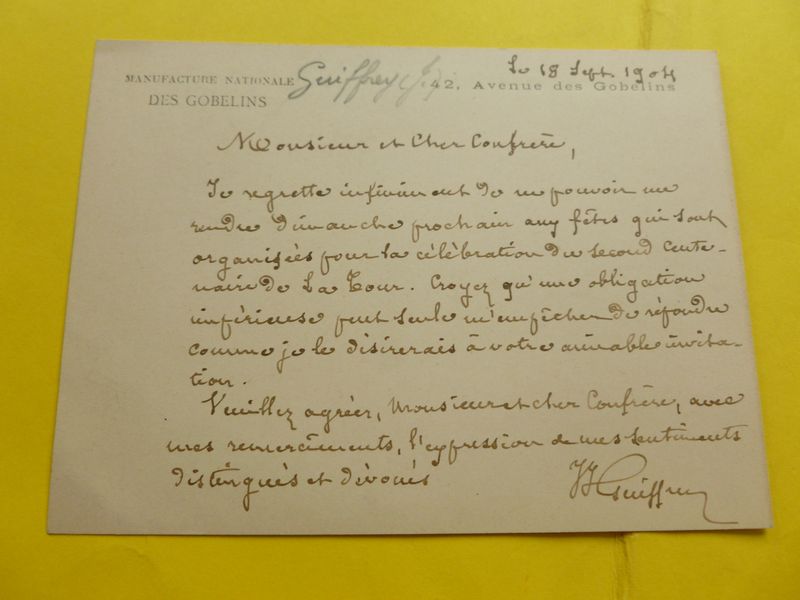 MANUFACTURE NATIONALE
DES GOBELINS
Guiffrey (J.)
Le 18 Sept. 1904
42, Avenue des Gobelins
Monsieur et Cher Confrère,
Je regrette infiniment de ne pouvoir me
rendre Dimanche prochain aux fêtes qui sont
organisées pour la célébration du second cente-
naire de La Tour. Croyez qu'une obligation
impérieuse peut seule m'empêcher de répondre
comme je le désirerais à votre aimable invita-
tion.
Veuillez agréer, Monsieur et cher Confrère, avec
mes remerciments, l'expression de mes sentiments
distingués et dévoués
JJ Guiffrey